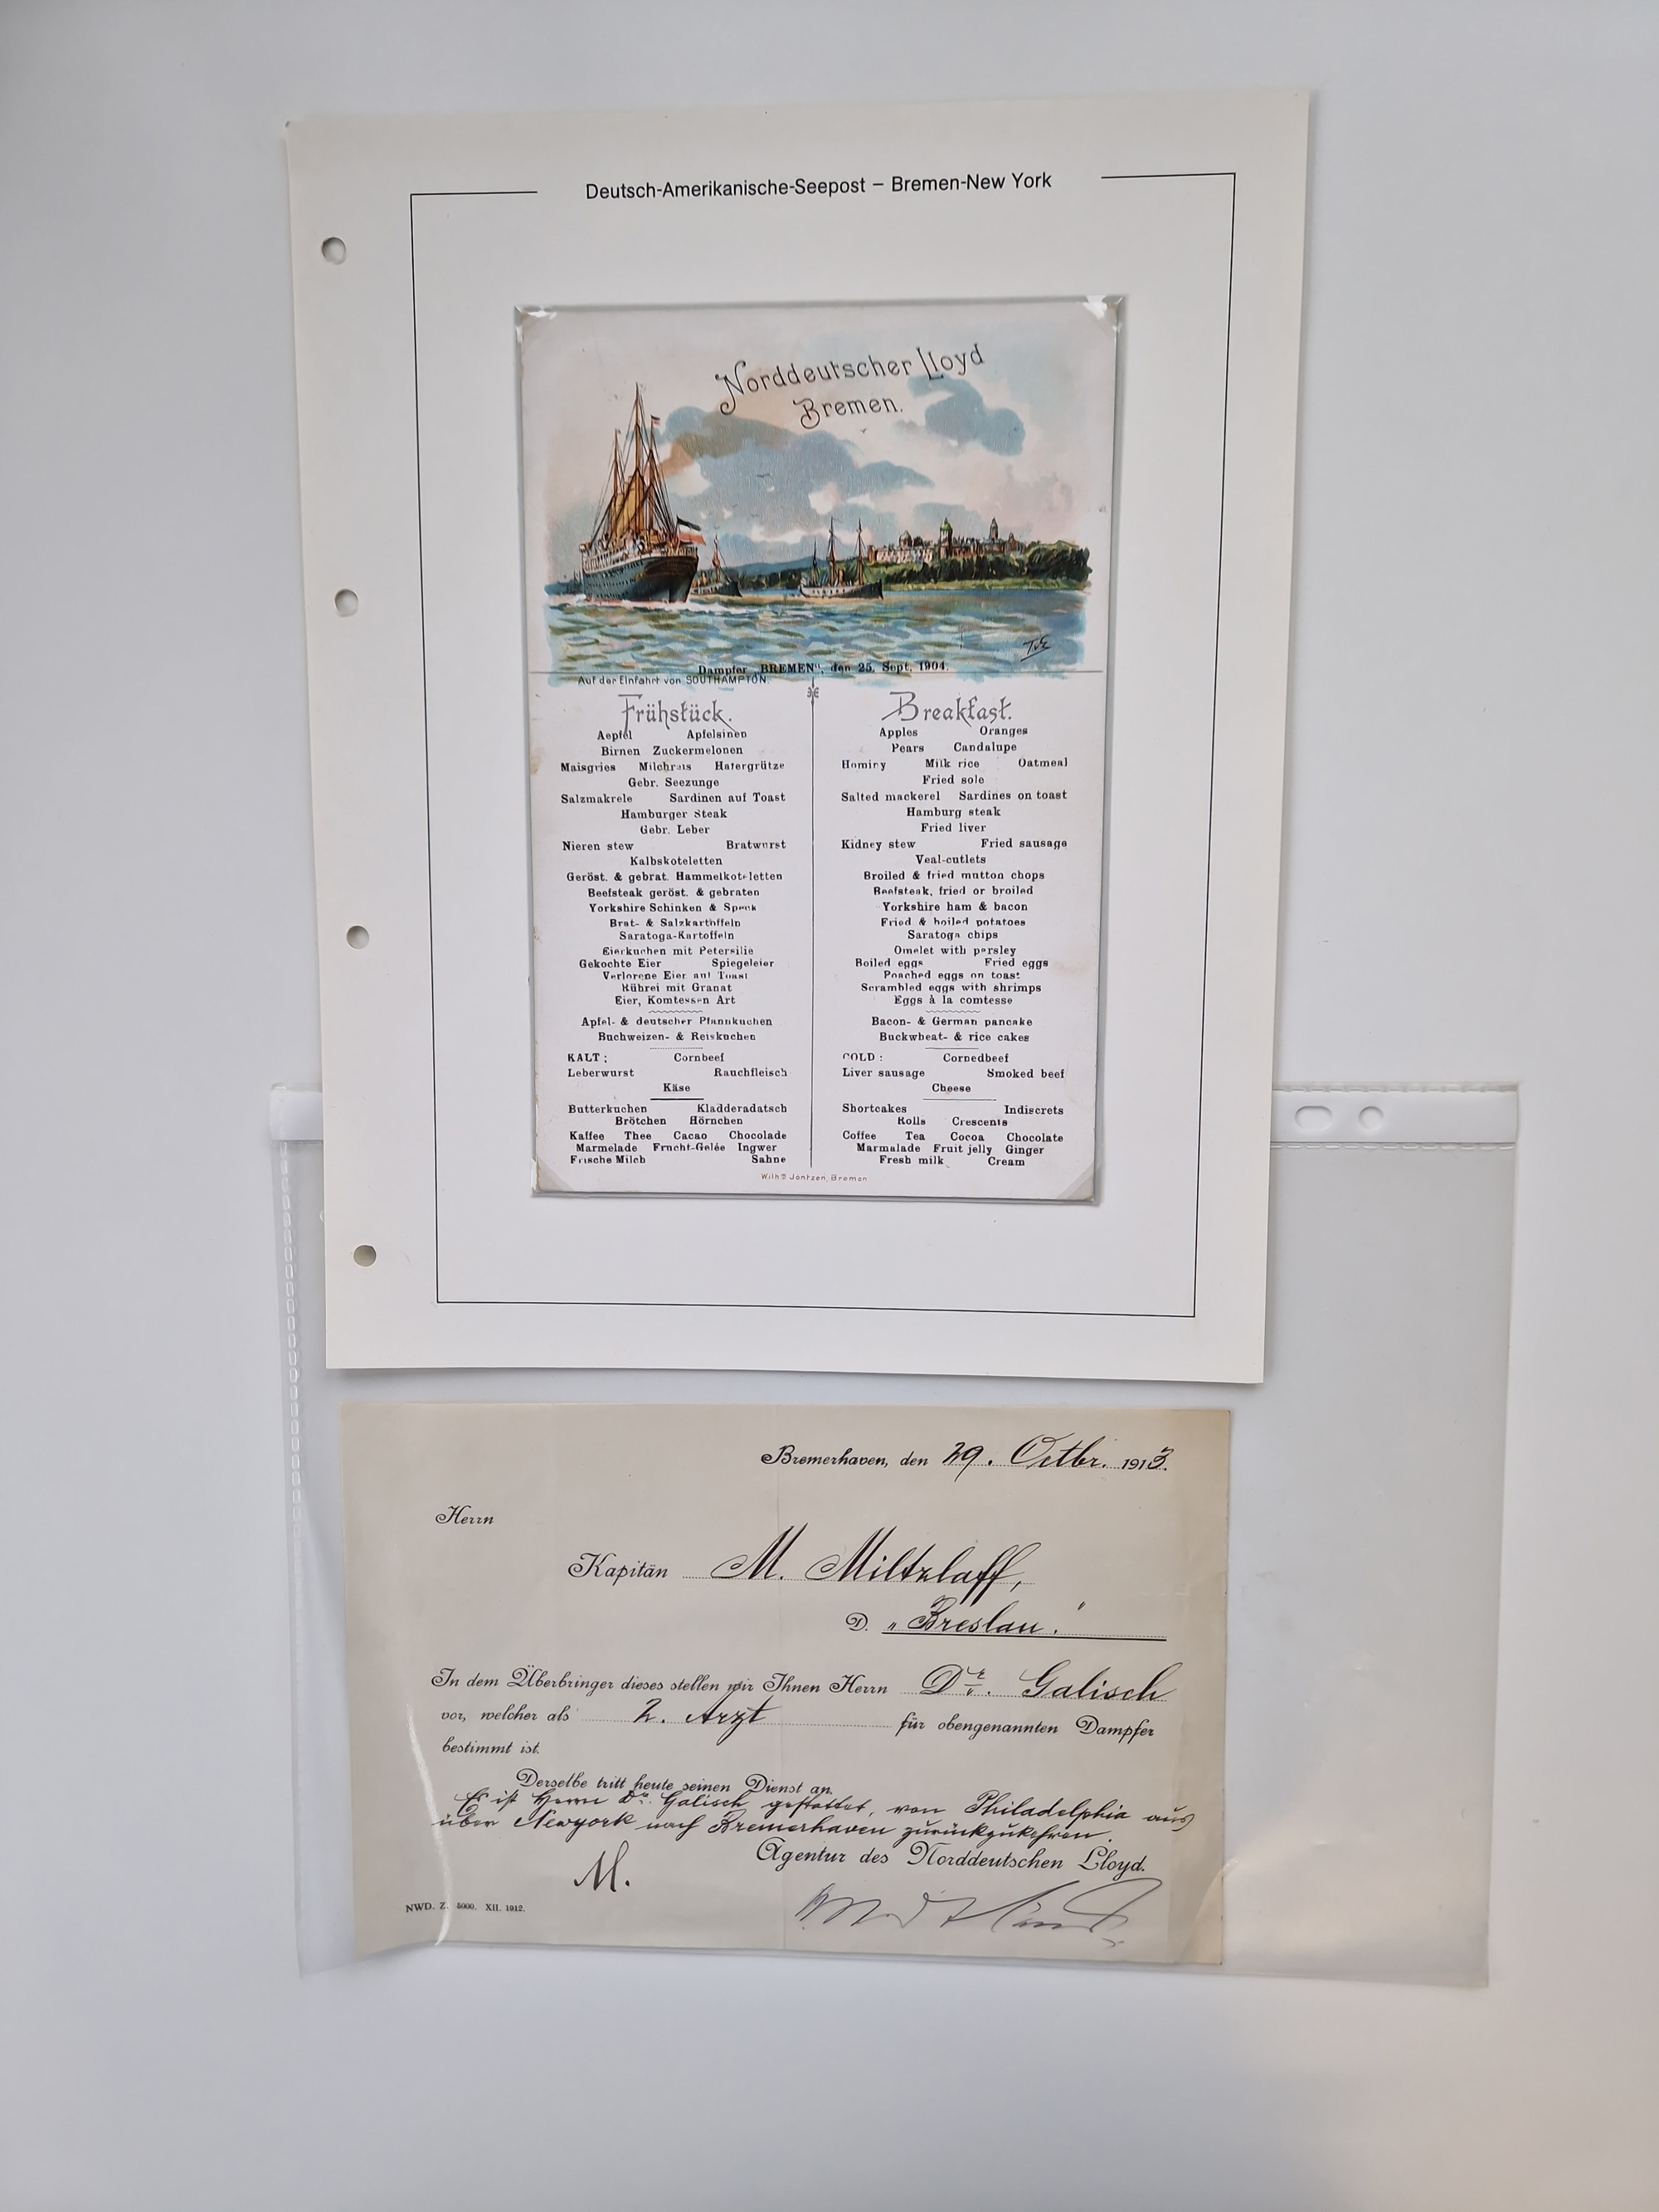 Deutsch-Amerikanische-Seepost – Bremen-New York
Norddeutscher Lloyd
Bremen.
TvE
Dampfer „BREMEN“, den 25. Sept. 1904.
Auf der Einfahrt von SOUTHAMPTON.
Frühstück.
Aepfel Apfelsinen
Birnen Zuckermelonen
Maisgries Milchreis Hafergrütze
Gebr. Seezunge
Salzmakrele Sardinen auf Toast
Hamburger Steak
Gebr. Leber
Nieren stew Bratwurst
Kalbskoteletten
Geröst. & gebrat. Hammelkoteletten
Beefsteak geröst. & gebraten
Yorkshire Schinken & Speck
Brat- & Salzkartoffeln
Saratoga-Kartoffeln
Eierkuchen mit Petersilie
Gekochte Eier Spiegeleier
Verlorene Eier auf Toast
Rührei mit Granat
Eier, Komtessen Art
Apfel- & deutscher Pfannkuchen
Buchweizen- & Reiskuchen
KALT: Cornbeef
Leberwurst Rauchfleisch
Käse
Butterkuchen Kladderadatsch
Brötchen Hörnchen
Kaffee Thee Cacao Chocolade
Marmelade Frucht-Gelée Ingwer
Frische Milch Sahne
Breakfast.
Apples Oranges
Pears Candalupe
Hominy Milk rice Oatmeal
Fried sole
Salted mackerel Sardines on toast
Hamburg steak
Fried liver
Kidney stew Fried sausage
Veal-cutlets
Broiled & fried mutton chops
Beefsteak, fried or broiled
Yorkshire ham & bacon
Fried & boiled potatoes
Saratoga chips
Omelet with parsley
Boiled eggs Fried eggs
Poached eggs on toast
Scrambled eggs with shrimps
Eggs à la comtesse
Bacon- & German pancake
Buckwheat- & rice cakes
COLD: Cornedbeef
Liver sausage Smoked beef
Cheese
Shortcakes Indiscrets
Rolls Crescents
Coffee Tea Cocoa Chocolate
Marmalade Fruit jelly Ginger
Fresh milk Cream
Wilh. Jöntzen, Bremen
Bremerhaven, den 29. Octbr. 1913.
Herrn
Kapitän M. Miltzlaff,
D. „Breslau."
In dem Überbringer dieses stellen wir Ihnen Herrn Dr. Galisch
vor, welcher als 2. Arzt für obengenannten Dampfer
bestimmt ist.
Derselbe tritt heute seinen Dienst an.
Es ist Herrn Dr. Galisch gestattet, von Philadelphia aus
über Newyork nach Bremerhaven zurückzukehren.
Agentur des Norddeutschen Lloyd.
M.
NWD. Z. 5000. XII. 1912.